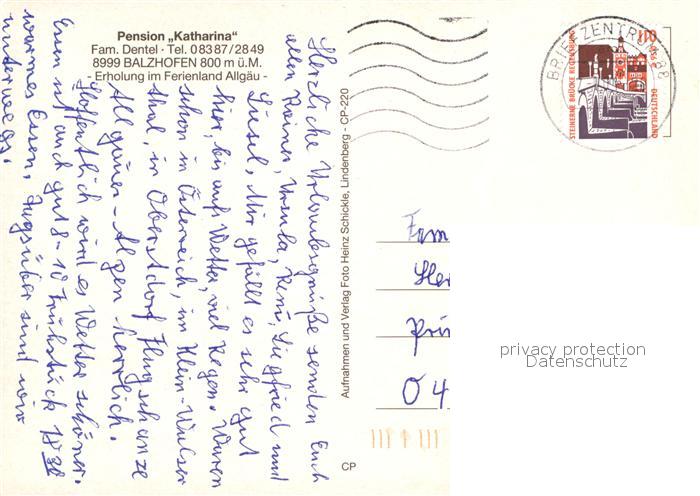 Pension „Katharina“
Fam. Dentel · Tel. 0 83 87 / 28 49
8999 BALZHOFEN 800 m ü.M.
- Erholung im Ferienland Allgäu -
Herzliche Urlaubsgrüße senden Euch
allen Rainer, Ursula, René, Siegfried und
Liesel. Mir gefällt es sehr gut
hier, bis aufs Wetter, viel Regen. Waren
schon in Österreich, im Klein-Walser
thal, in Oberstdorf Flugschanze
Allgäuer-Alpen - herrlich.
Hoffentlich wird es Wetter schöner.
Essen ist auch gut 8-10 Frühstück 18 30
warmes Essen. Tagsüber sind wir
unterwegs.
Aufnahmen und Verlag Foto Heinz Schickle, Lindenberg - CP-220
CP
BRIEFZENTRUM 88
STEINERNE BRÜCKE REGENSBURG
DEUTSCHLAND
Fam
04
privacy protection
Datenschutz